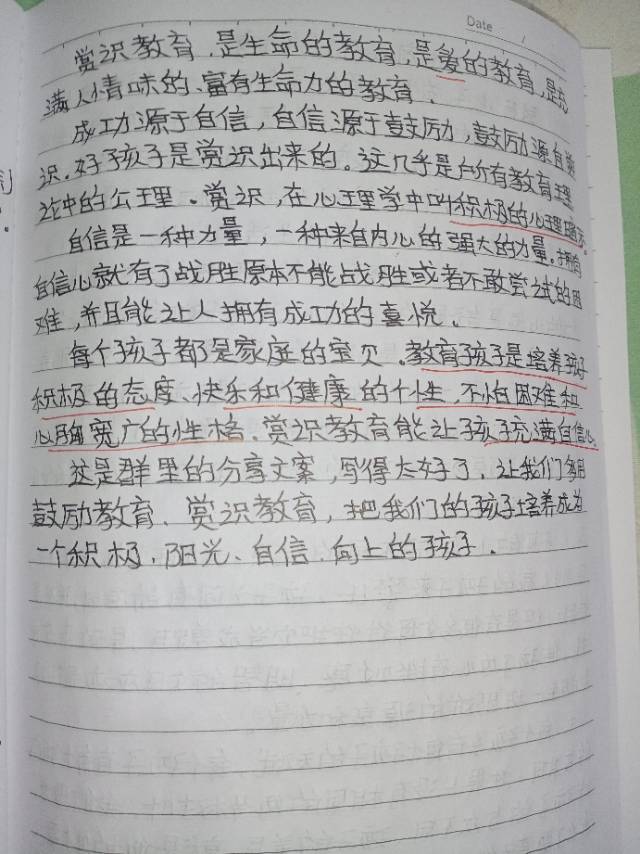 Date /
赏识教育.是生命的教育,是爱的教育,是充
满人情味的、富有生命力的教育.
成功源于自信,自信源于鼓励,鼓励源自赏
识.好孩子是赏识出来的。这几乎是所有教育理
论中的公理.赏识,在心理学中叫积极的心理暗示.
自信是一种力量,一种来自内心的强大的力量.拥有
自信心就有了战胜原本不能战胜或者不敢尝试的困
难,并且能让人拥有成功的喜悦.
每个孩子都是家庭的宝贝.教育孩子是培养孩子
积极的态度、快乐和健康的个性,不怕困难和
心胸宽广的性格.赏识教育能让孩子充满自信心.
这是群里的分享文案,写得太好了.让我们多用
鼓励教育、赏识教育,把我们的孩子培养成为
一个积极.阳光、自信.向上的孩子.